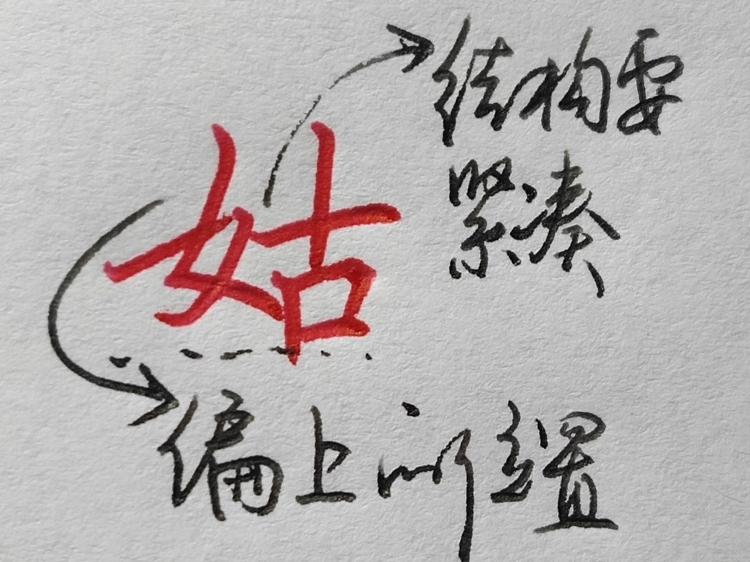 结构要
紧凑
姑
偏上
置